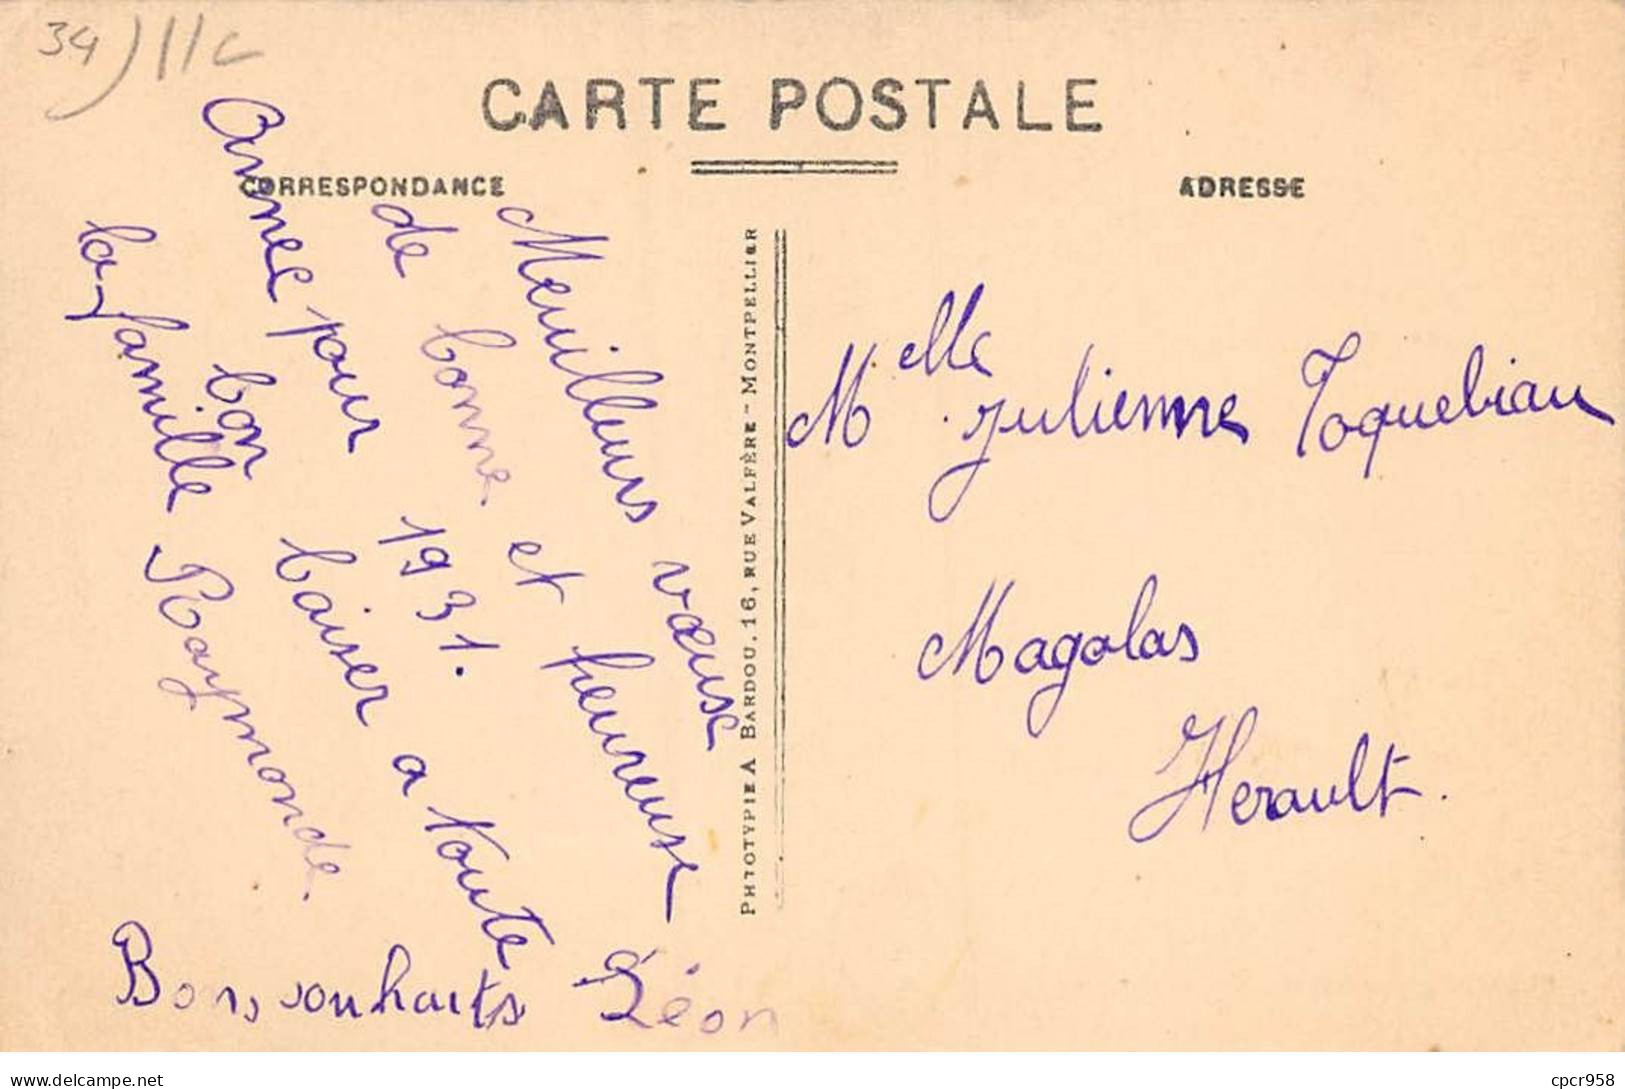 34) 11c
CARTE POSTALE
CORRESPONDANCE
ADRESSE
Meuilleurs vœuse
de bonne et heureuse
Annee pour 1931.
bon baiser a toute
la famille Raymonde.
Bons souhaits Léon
PHOTOTYPIE A BARDOU. 16, RUE VALFÈRE - MONTPELLIER
Melle Julienne Toquebiau
Magalas
Herault.
delcampe.net
cpcr958